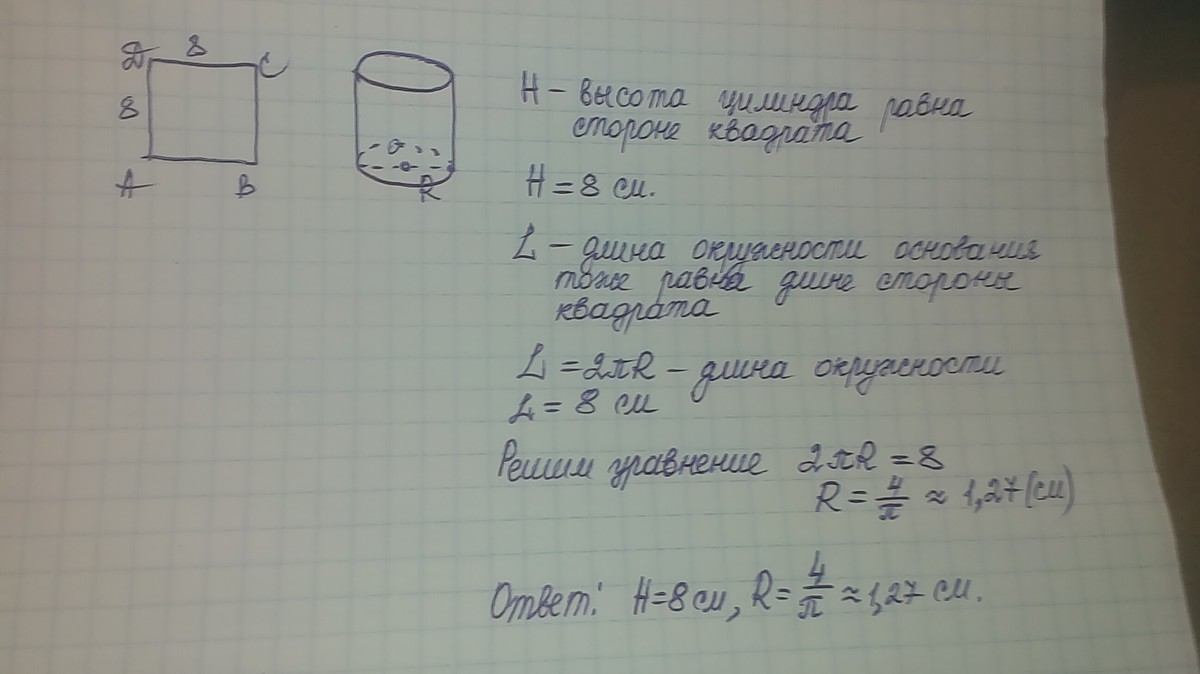 D 8 C
8
A B
R
H – высота цилиндра равна
стороне квадрата
H = 8 см.
L – длина окружности основания
тоже равна длине стороны
квадрата
L = 2πR – длина окружности
L = 8 см
Решим уравнение 2πR = 8
R = 4/π ≈ 1,27 (см)
Ответ: H = 8 см, R = 4/π ≈ 1,27 см.